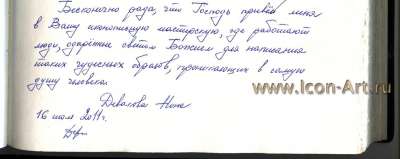 Бесконечно рада, что Господь привёл меня
в Вашу иконописную мастерскую, где работают
люди, одарённые светом Божьим для написания
таких чудесных образов, проникающих в самую
душу человека.
www.Icon-Art.ru
Нина
16 июля 2011г.